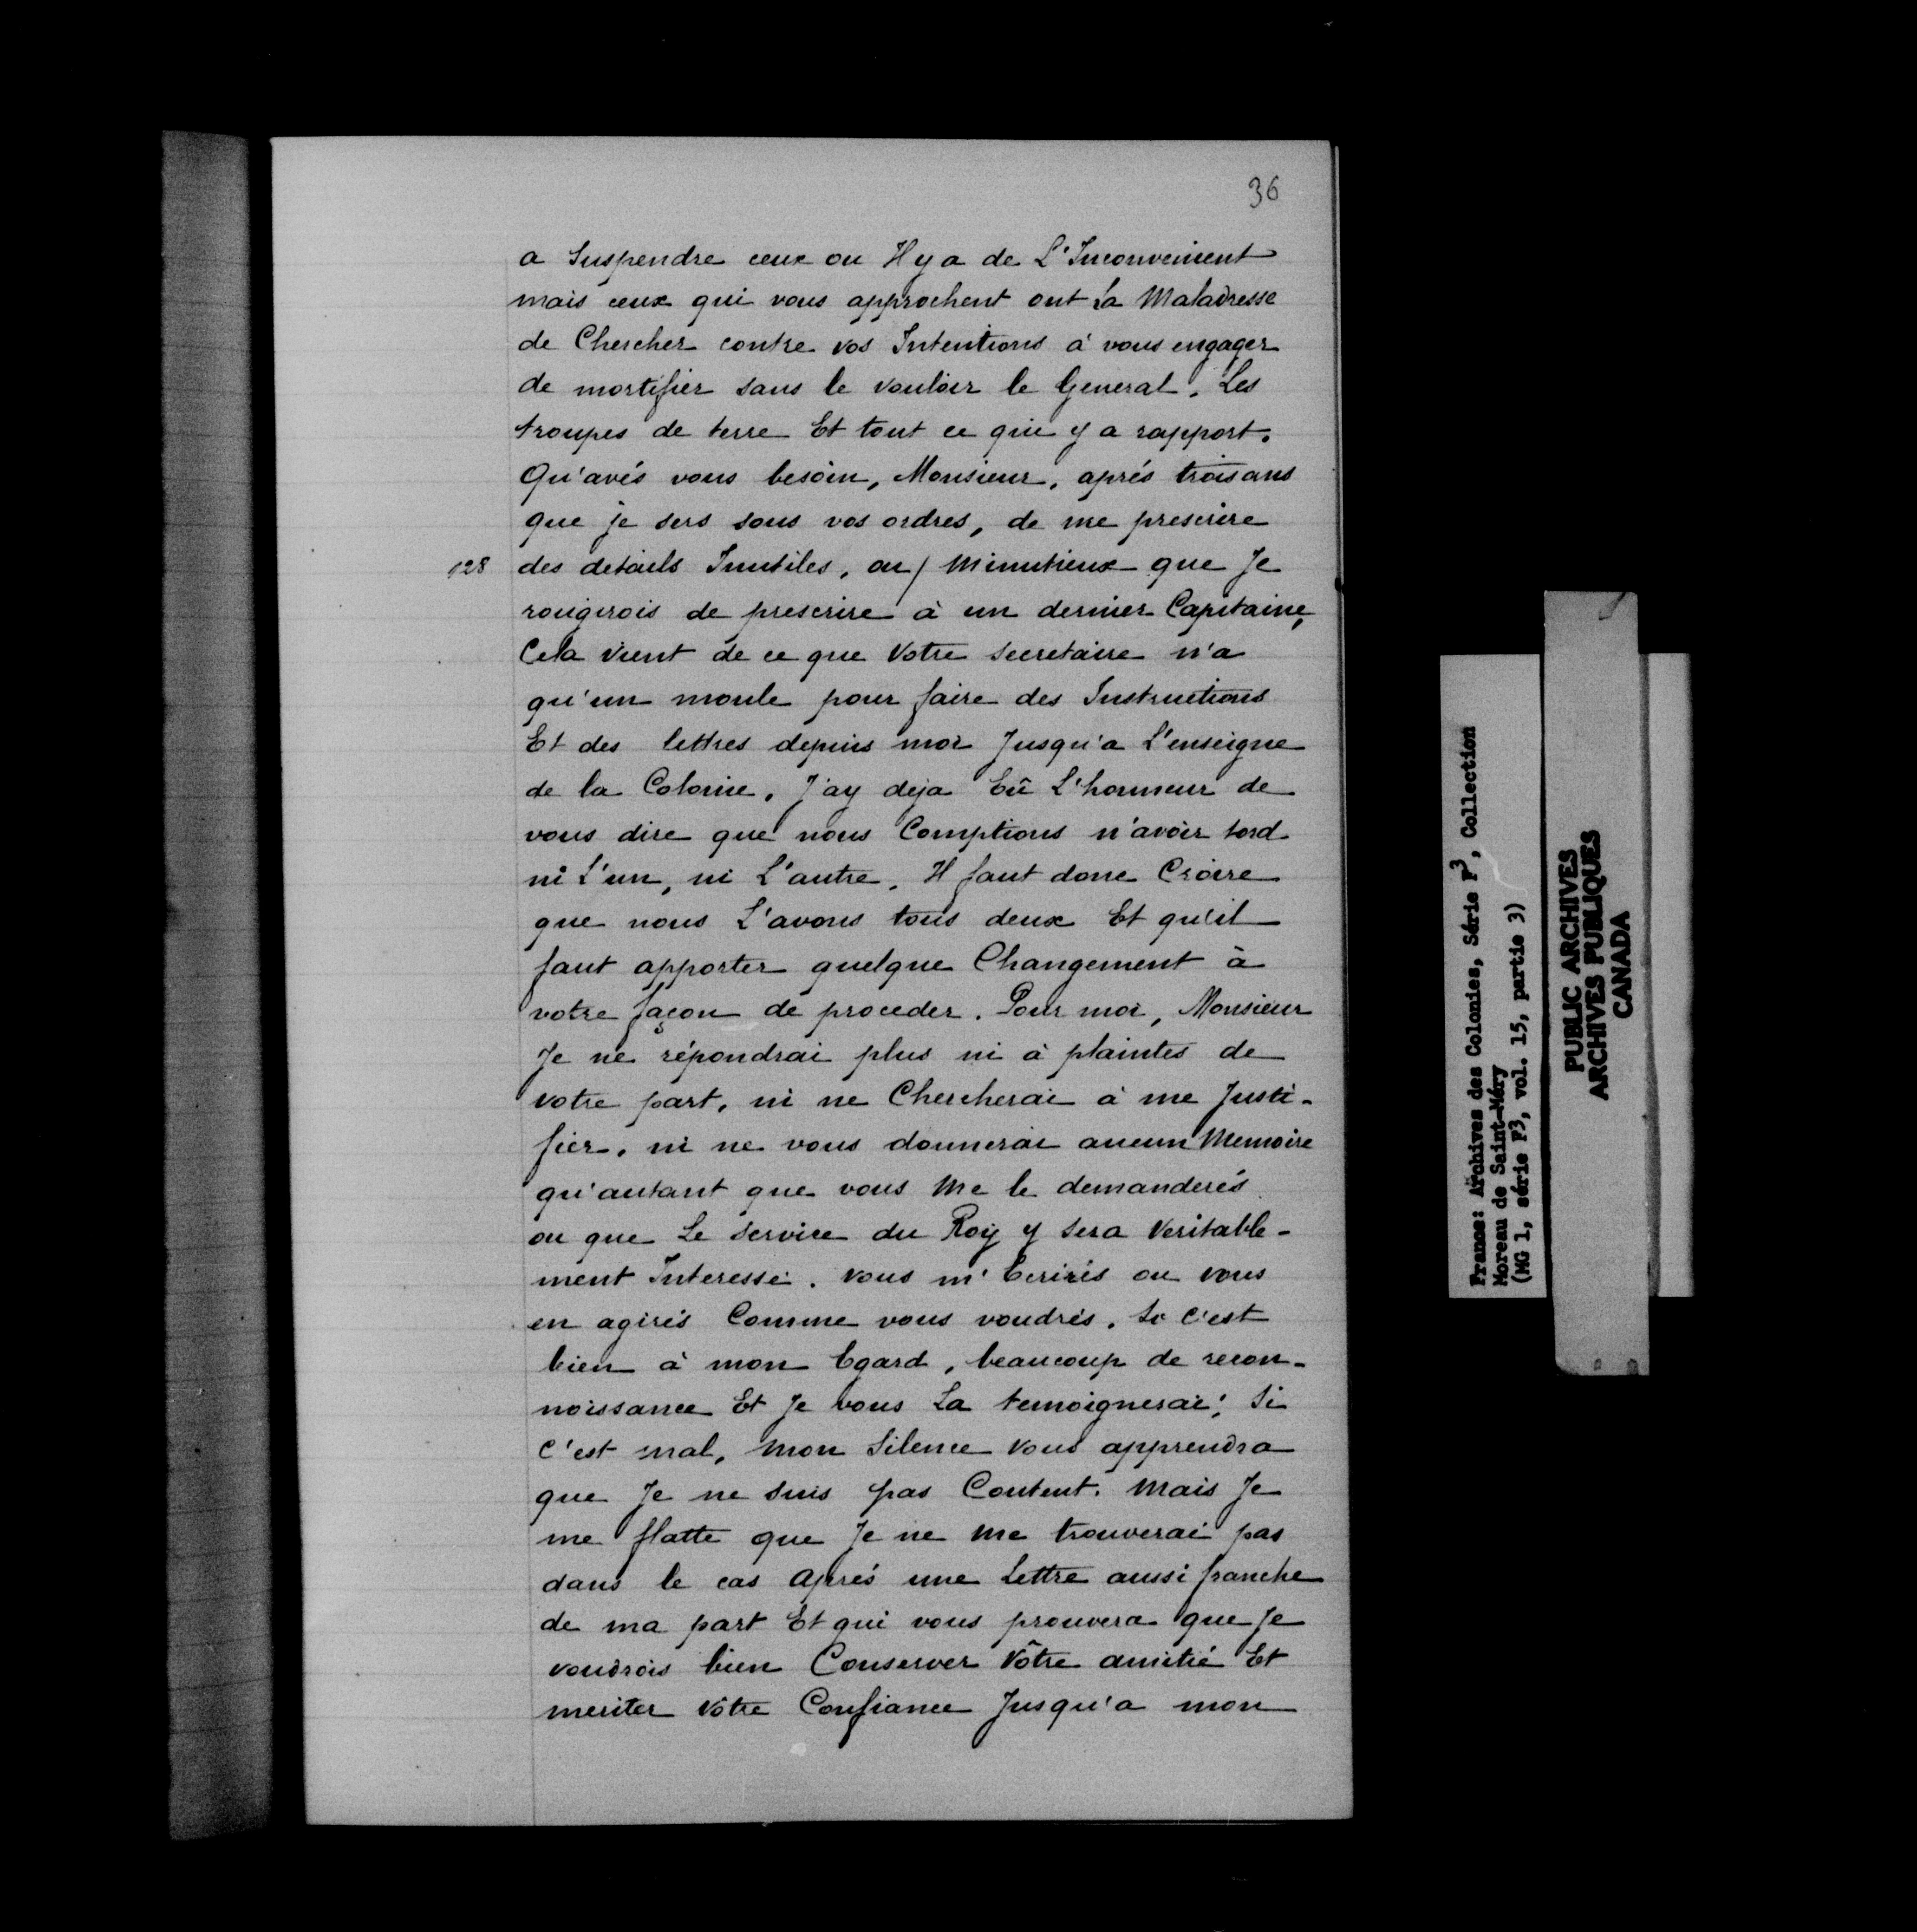 36
a Suspendre ceux ou Il y a de L'Inconvenient
mais ceux qui vous approchent ont la Maladresse
de Chercher contre vos Intentions á vous engager
de mortifier sans le vouloir le General. Les
troupes de terre Et tout ce qui y a rapport.
Qu'avés vous besoin, Monsieur, aprés trois ans
que je sers sous vos ordres, de me prescrire
128 des details Inutiles, ou / Minutieux que Je
rougirois de prescrire à un dernier Capitaine,
Cela vient de ce que Votre secretaire n'a
qu'un moule pour faire des Instructions
Et des lettres depuis moi Jusqu'a L'enseigne
de la Colonie. J'ay deja Eû L'honneur de
vous dire que nous Comptions n'avoir tord
ni L'un, ni L'autre. Il faut donc Croire
que nous L'avons tous deux Et qu'il
faut apporter quelque Changement à
votre façon de proceder. Pour moi, Monsieur
Je ne répondrai plus ni à plaintes de
votre part, ni ne Chercherai à me Justi-
fier, ni ne vous donnerai aucun Memoire
qu'autant que vous Me le demanderés
ou que Le Service du Roÿ y sera Veritable-
ment Interessé. Vous m'Ecrirés ou vous
en agirés Comme vous voudrés. Si c'est
bien à mon Egard, beaucoup de recon-
noissance Et Je vous La temoignerai; Si
C'est mal, Mon Silence vous apprendra
que Je ne suis pas Content. Mais Je
me flatte que Je ne Me trouverai pas
dans le cas Aprés une Lettre aussi franche
de ma part Et qui vous prouvera que Je
voudrois bien Conserver Vôtre amitié Et
meriter Vôtre Confiance Jusqu'a mon
France: Archives des Colonies, Série F3, Collection
Moreau de Saint-Méry
(MG 1, série F3, vol. 15, partie 3)
PUBLIC ARCHIVES
ARCHIVES PUBLIQUES
CANADA